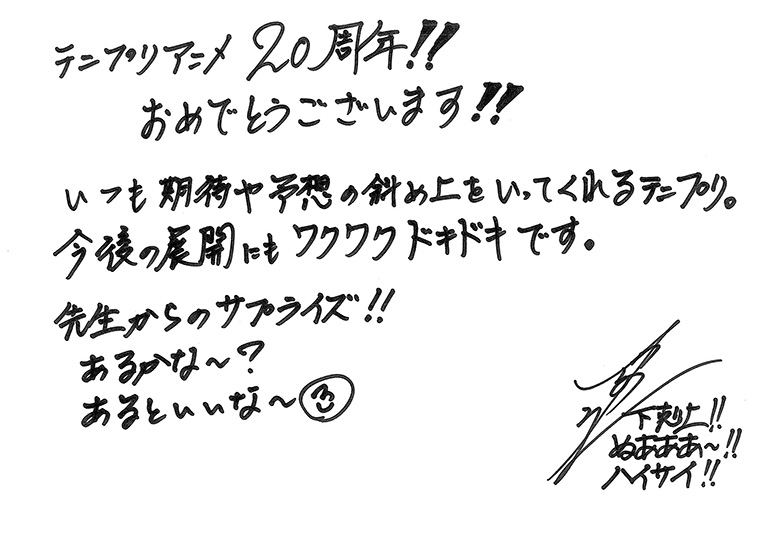 テニプリアニメ 20周年!!
おめでとうございます!!
いつも期待や予想の斜め上をいってくれるテニプリ。
今後の展開にもワクワクドキドキです。
先生からのサプライズ!!
あるかな〜?
あるといいな〜
下剋上!!
ぬあああ〜!!
ハイサイ!!